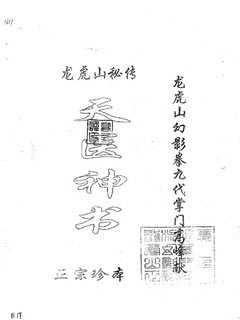 龙虎山秘传
天医神书
龙虎山幻影拳九代掌门高峰献
正宗珍本